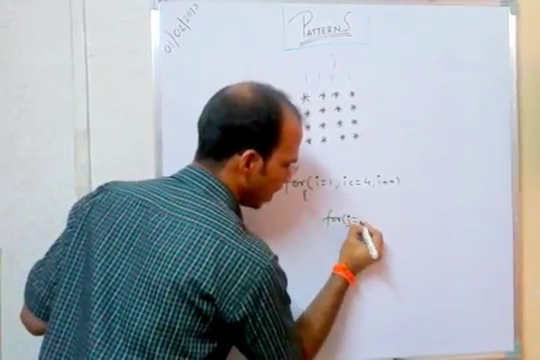 01/02/2013
PATTERNS
* * * *
* * * *
* * * *
* * * *
for(i=1, i<=4, i++)
{
for(j=